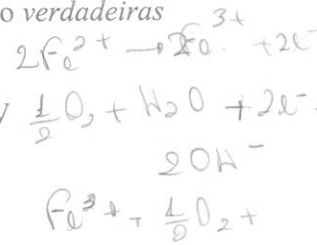 o verdadeiras
2Fe²⁺ → 2Fe³⁺ + 2e⁻
½ O₂ + H₂O + 2e⁻
2OH⁻
Fe³⁺ + ½ O₂ +